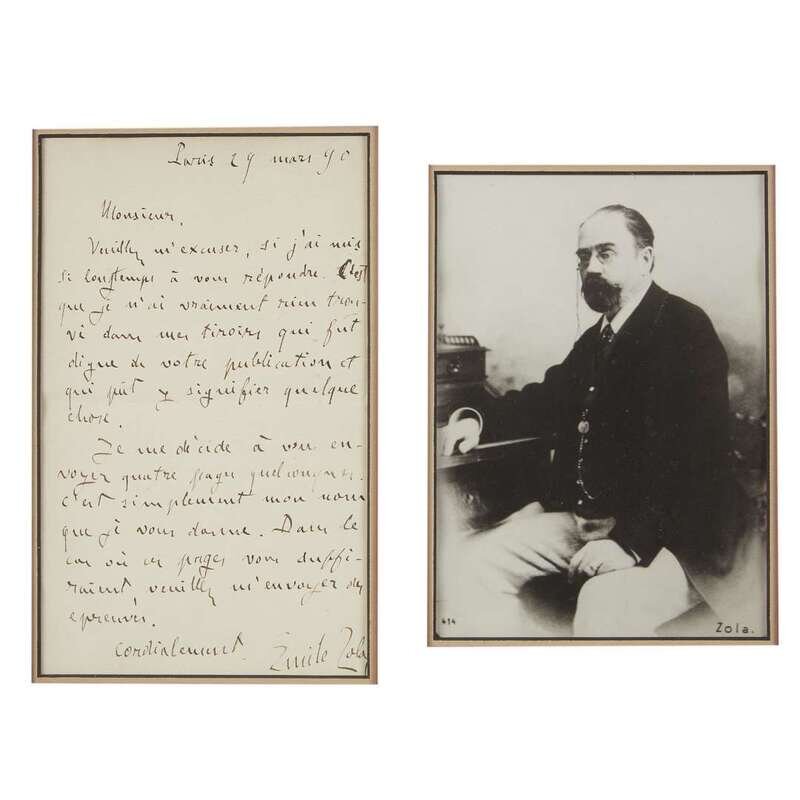 Paris 29 mars 90
Monsieur,
Veuillez m'excuser, si j'ai mis
si longtemps à vous répondre. C'est
que je n'ai vraiment rien trou-
vé dans mes tiroirs qui fût
digne de votre publication et
qui pût y signifier quelque
chose.
Je me décide à vous en-
voyer quatre pages quelconques.
C'est simplement mon nom
que je vous donne. Dans le
cas où ces pages vous suffi-
raient, veuillez m'envoyer des
épreuves.
Cordialement.
Émile Zola
414
Zola.